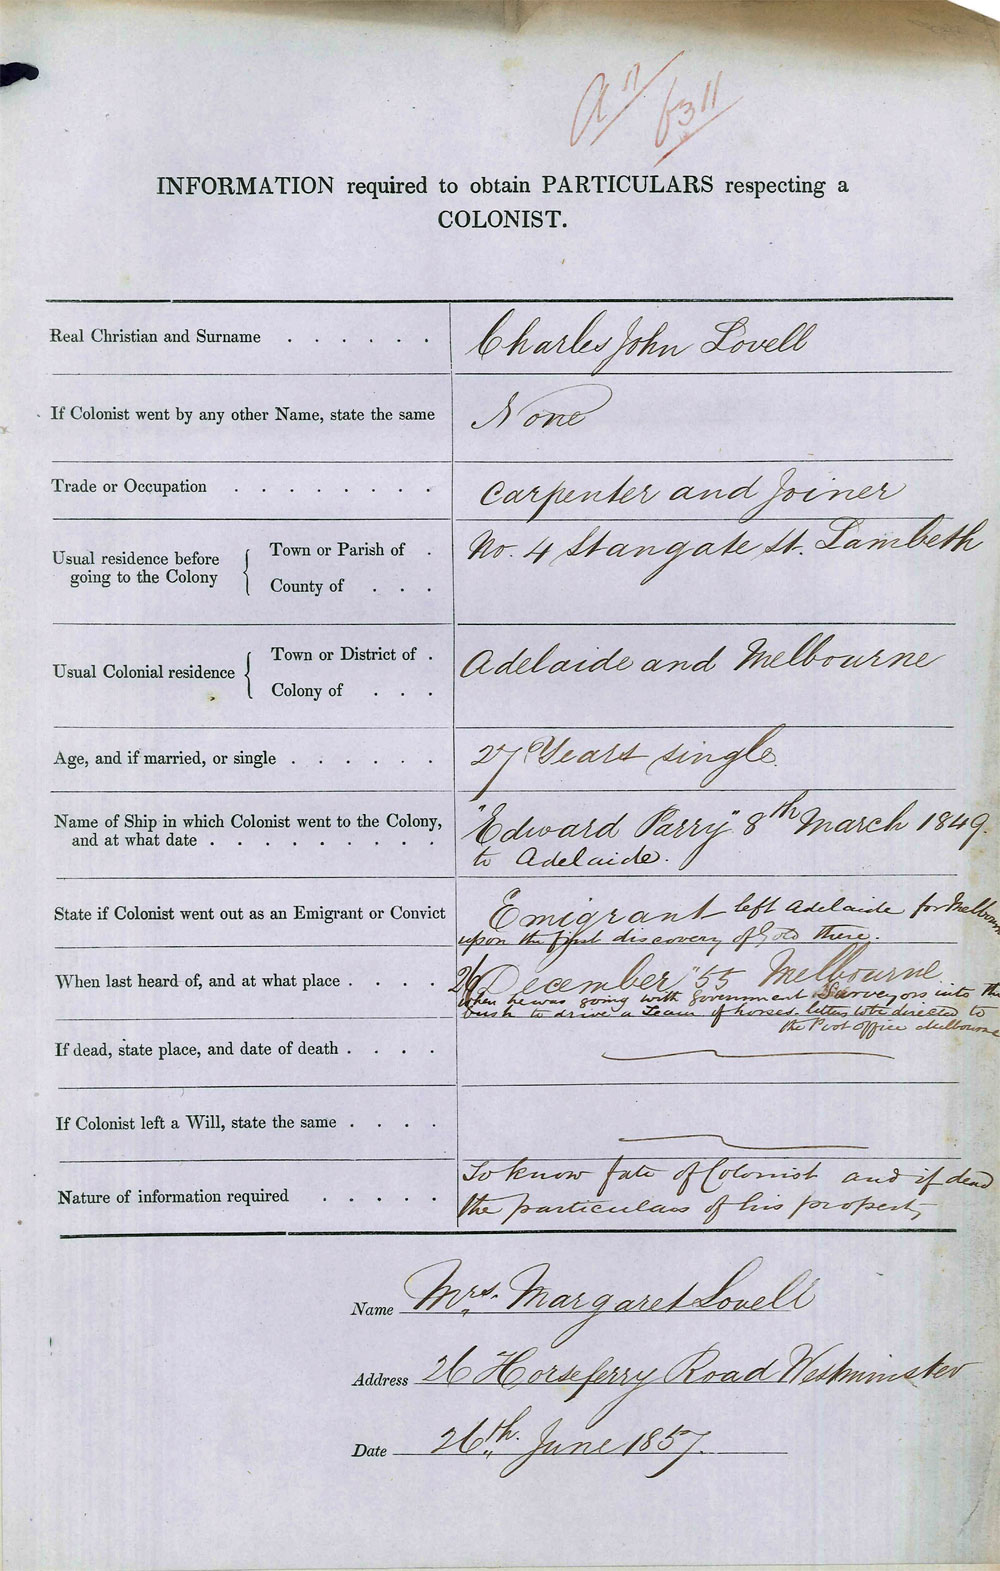 6311
INFORMATION required to obtain PARTICULARS respecting a
COLONIST.
Real Christian and Surname . . . . . . Charles John Lovell
If Colonist went by any other Name, state the same None
Trade or Occupation . . . . . . . . Carpenter and Joiner
Usual residence before going to the Colony { Town or Parish of . No. 4 Stangate St. Lambeth
County of . . .
Usual Colonial residence { Town or District of . Adelaide and Melbourne
Colony of . . .
Age, and if married, or single . . . . . . 27 Years single
Name of Ship in which Colonist went to the Colony, "Edward Parry" 8th March 1849.
and at what date . . . . . . . . . to Adelaide.
State if Colonist went out as an Emigrant or Convict Emigrant left Adelaide for Melbourn
upon the first discovery of Gold there.
When last heard of, and at what place . . . . 26 December "55 Melbourne
when he was going with Government Surveyors into the
bush to drive a Team of horses. letters to be directed to
the Post Office Melbourne
If dead, state place, and date of death . . . .
If Colonist left a Will, state the same . . . .
Nature of information required . . . . . To know fate of Colonist and if dead
the particulars of his property
Name Mrs. Margaret Lovell
Address 26 Horseferry Road Westminster
Date 26th. June 1857.